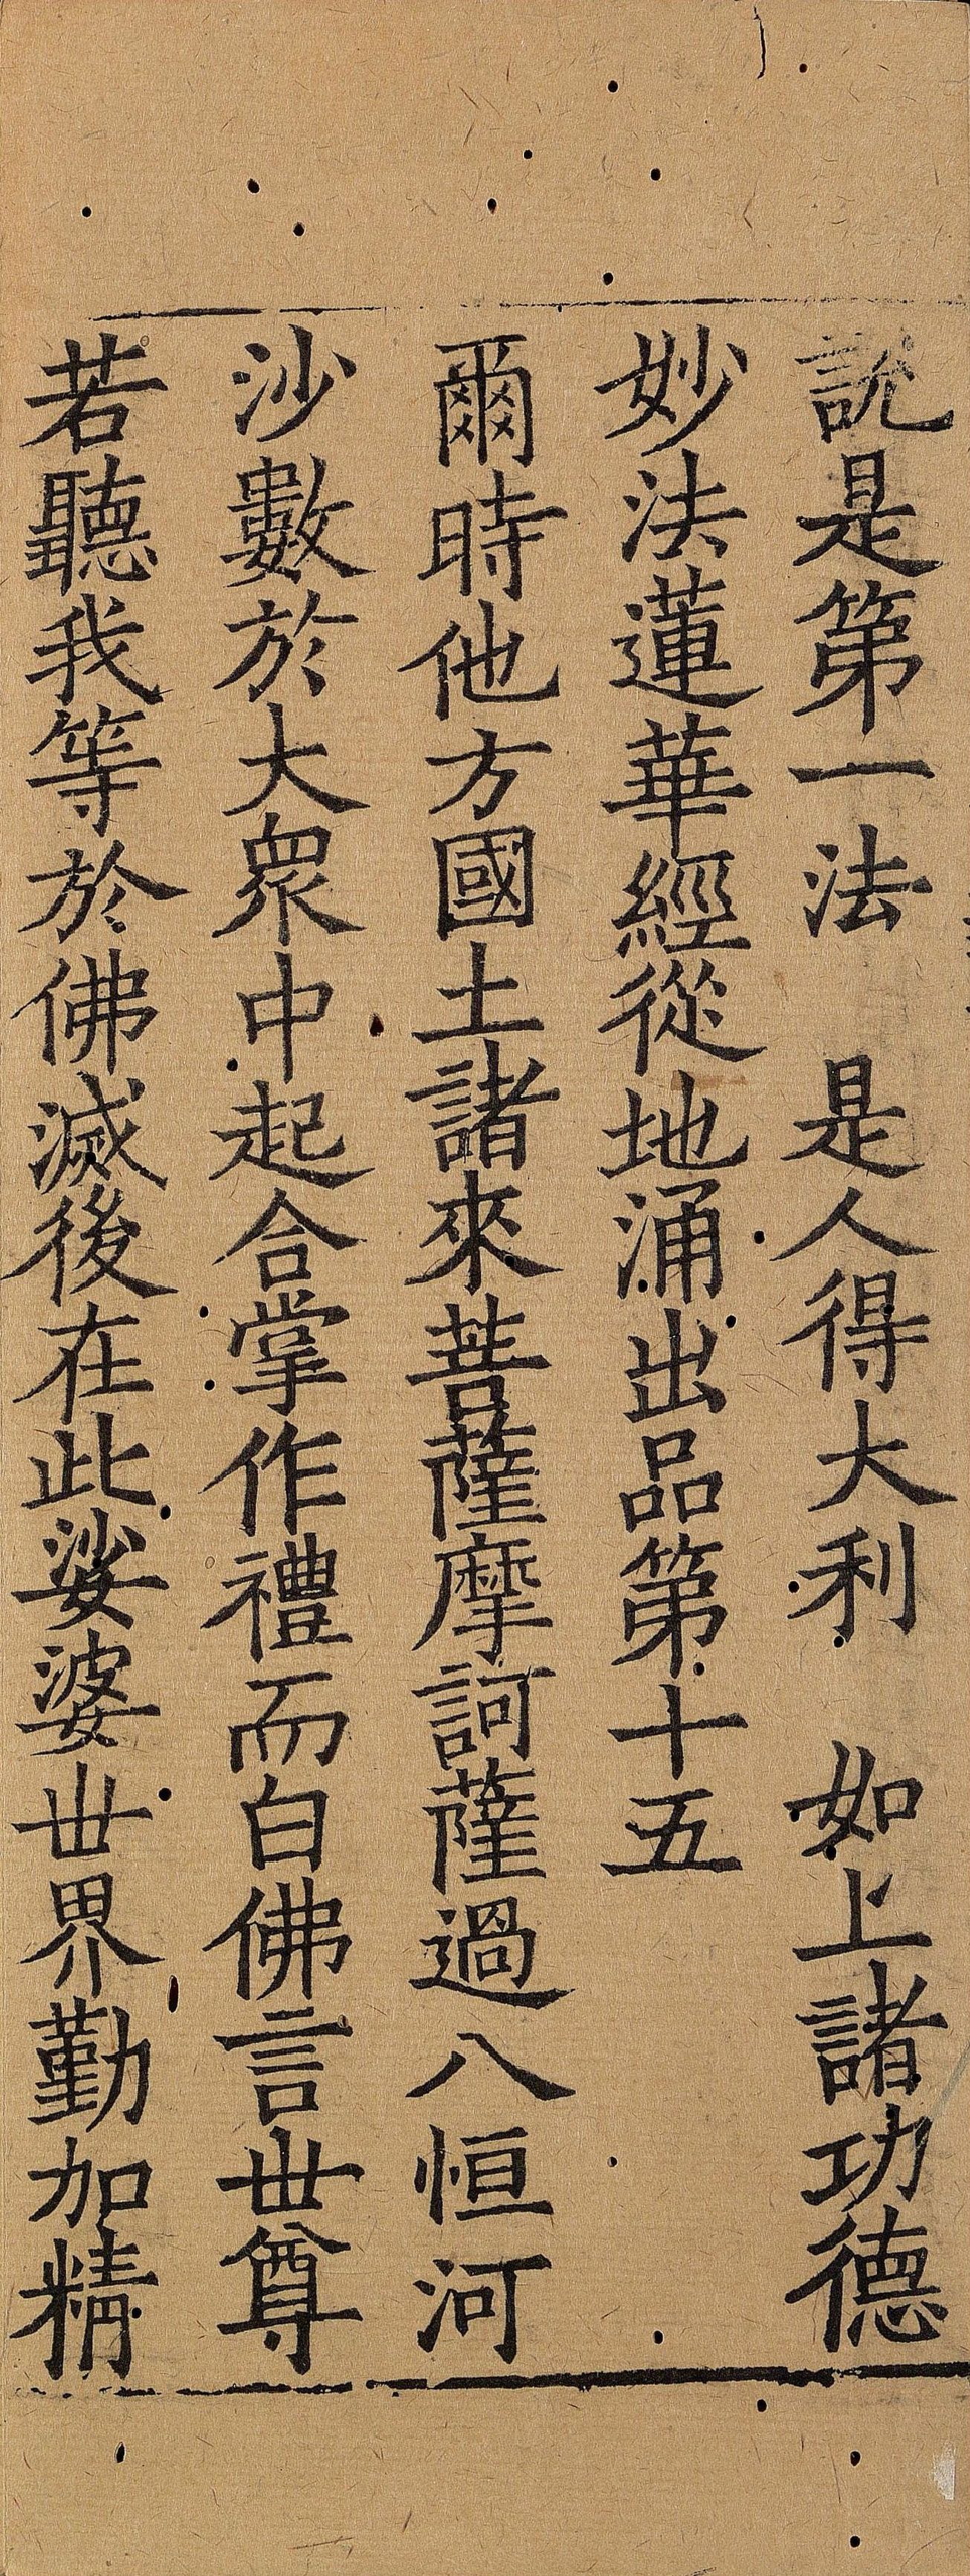 說是第一法　是人得大利　如上諸功德
妙法蓮華經從地涌出品第十五
爾時他方國土諸來菩薩摩訶薩過八恒河
沙數於大衆中起合掌作禮而白佛言世尊
若聽我等於佛滅後在此娑婆世界勤加精